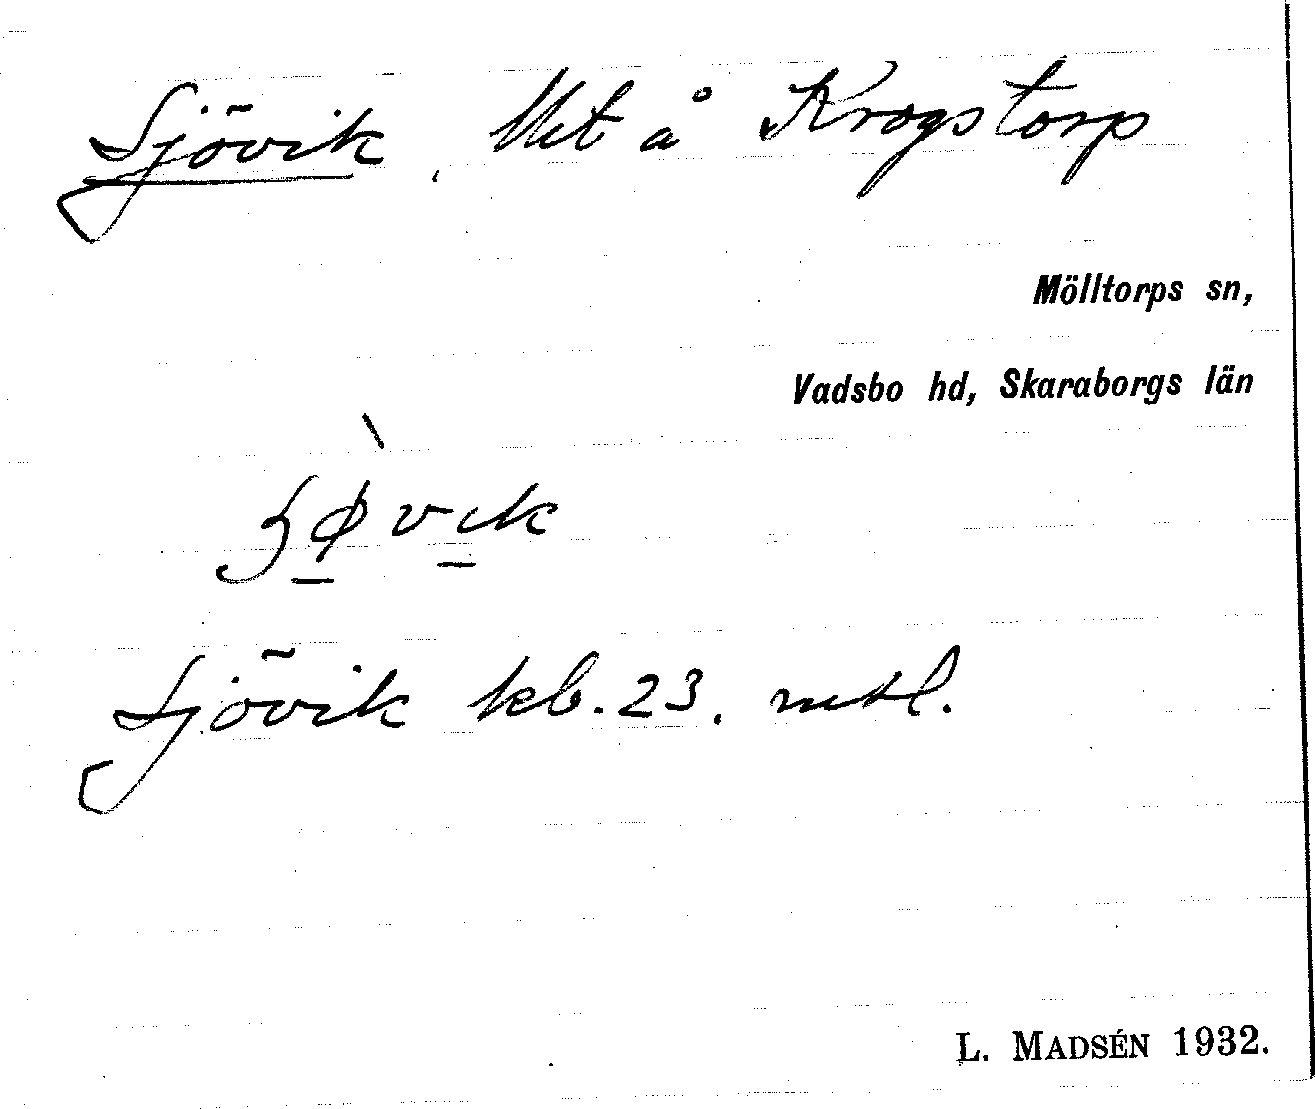 Sjövik, Ut å Krogstorp
Mölltorps sn,
Vadsbo hd, Skaraborgs län
ʃø̠̀vi̠k
Sjövik kb. 23. mtl.
L. MADSÉN 1932.